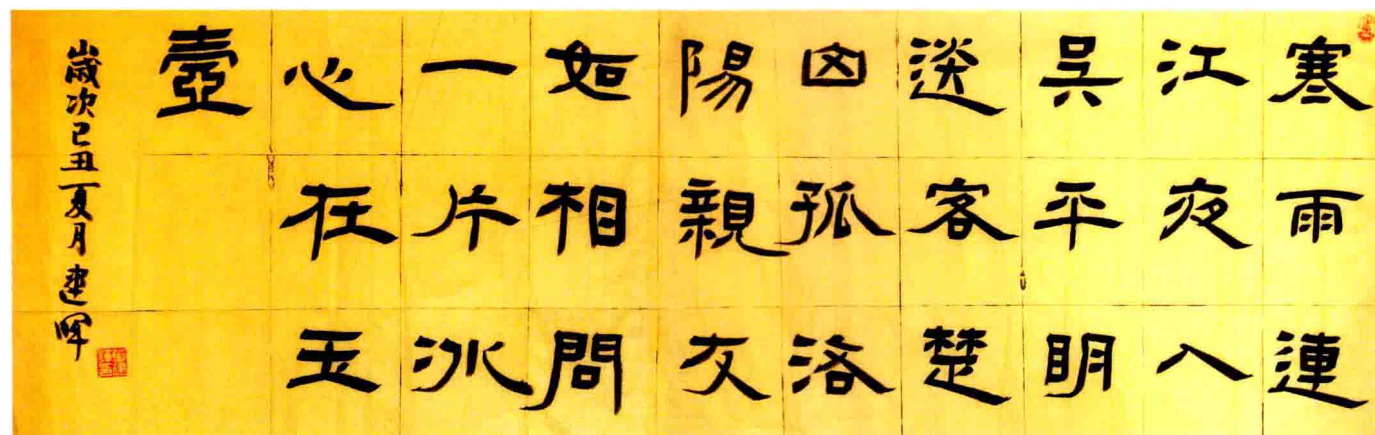 寒雨連
江夜入
吴平明
送客楚
山孤洛
陽親友
如相問
一片冰
心在玉
壺
歲次己丑夏月建晖